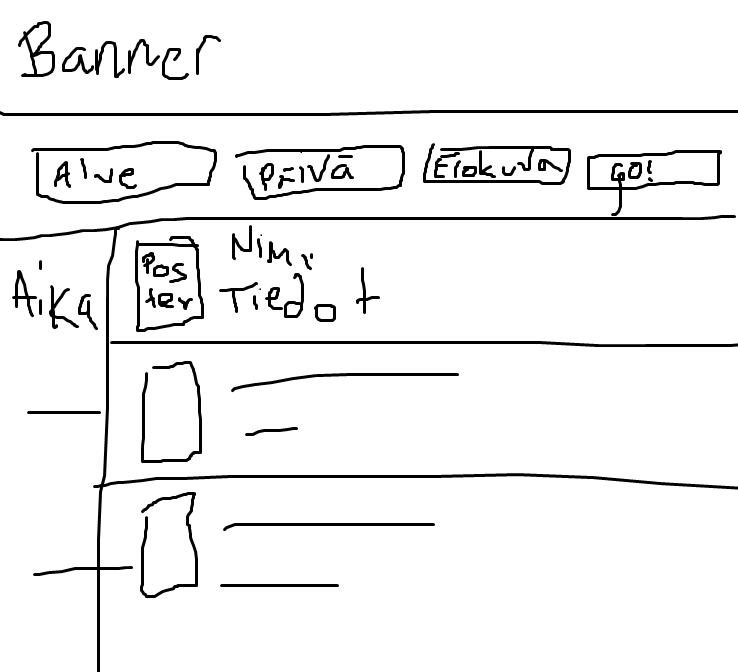 Banner
Alue
Päivä
Elokuva
GO!
Aika
Poster
Nimi
Tiedot